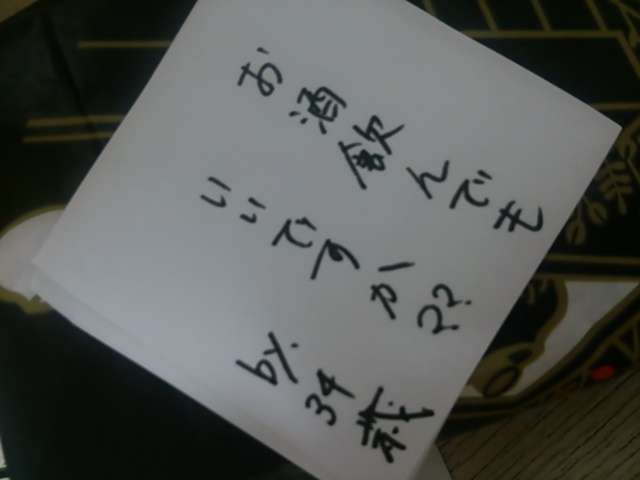 お酒飲んでも
いいですか??
by. 34歳